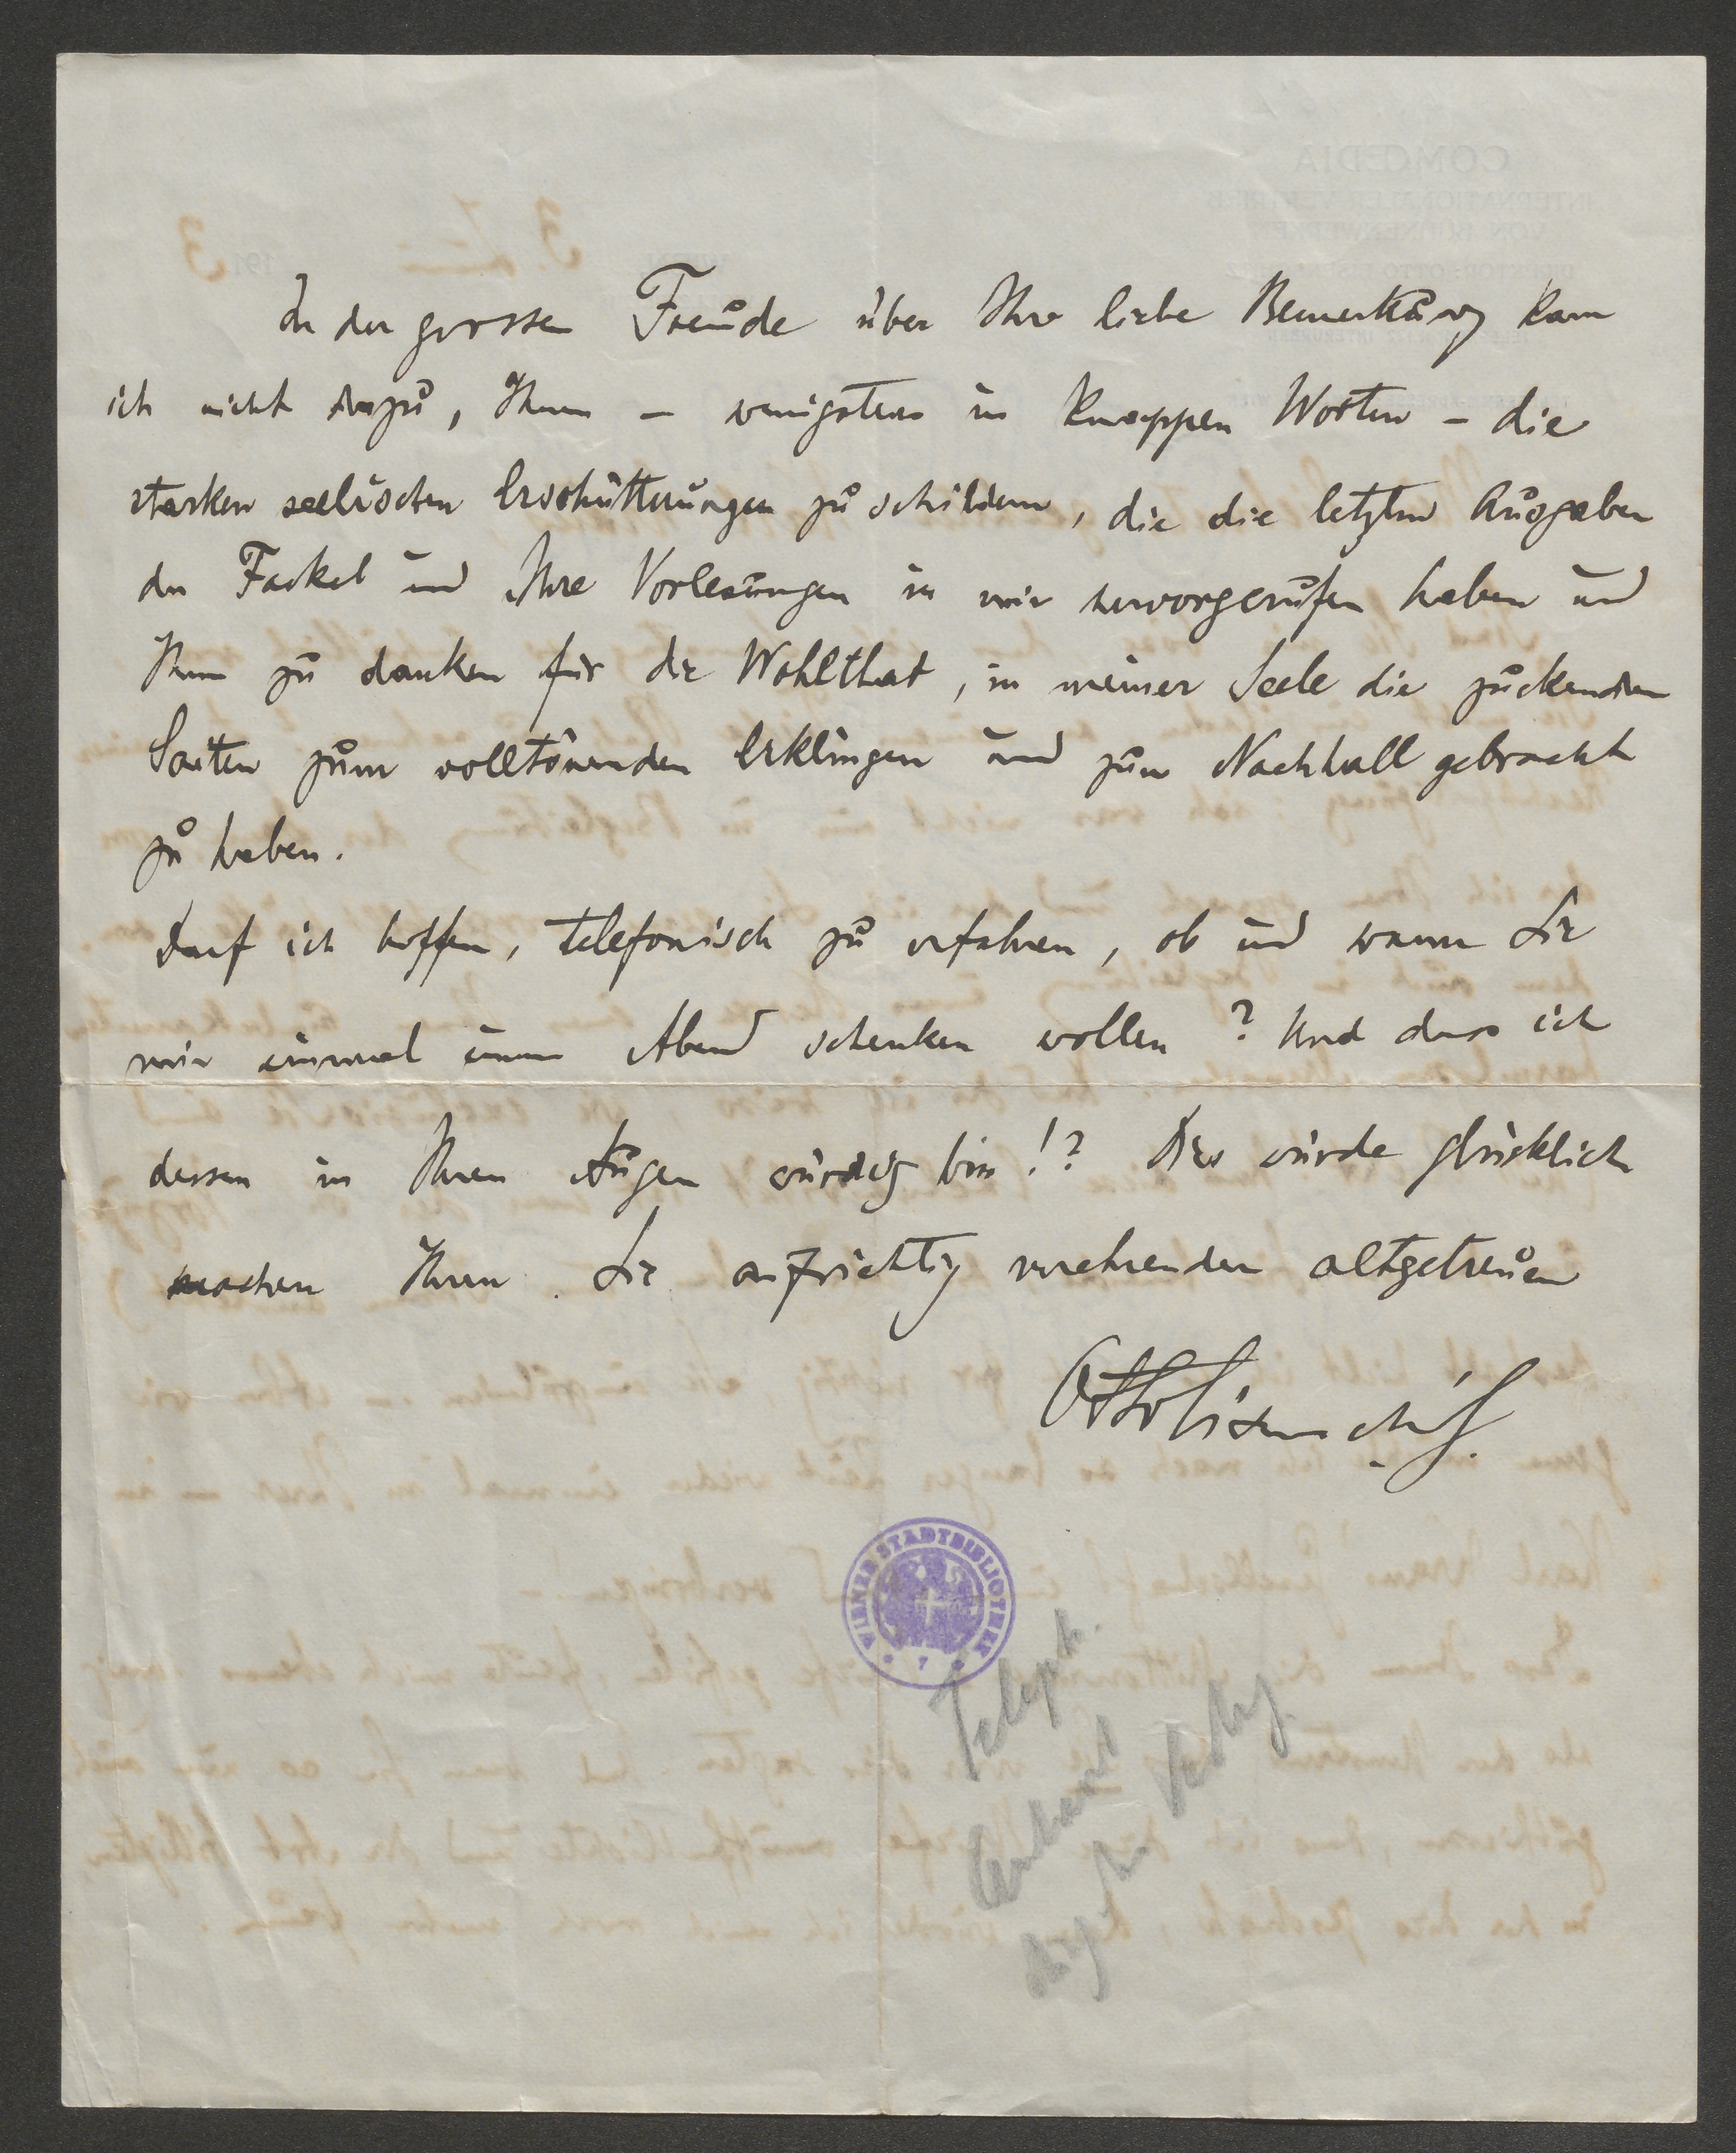 In der grossen Freude über Ihre liebe Bemerkung kam
ich nicht dazu, Ihnen – wenigstens in knappen Worten – die
starken seelischen Erschütterungen zu schildern, die die letzten Ausgaben
der Fackel und Ihre Vorlesungen in mir hervorgerufen haben und
Ihnen zu danken für die Wohlthat, in meiner Seele die zuckenden
Saiten zum volltönenden Erklingen und zum Nachhall gebracht
zu haben.
Darf ich hoffen, telefonisch zu erfahren, ob und wann Sie
mir einmal einen Abend schenken wollen? Und dass ich
dessen in Ihren Augen würdig bin!? Dies würde glücklich
machen Ihren Sie aufrichtig verehrenden altgetreuen
Otto Eisenschitz
WIENER STADTBIBLIOTHEK
7
Teleph.